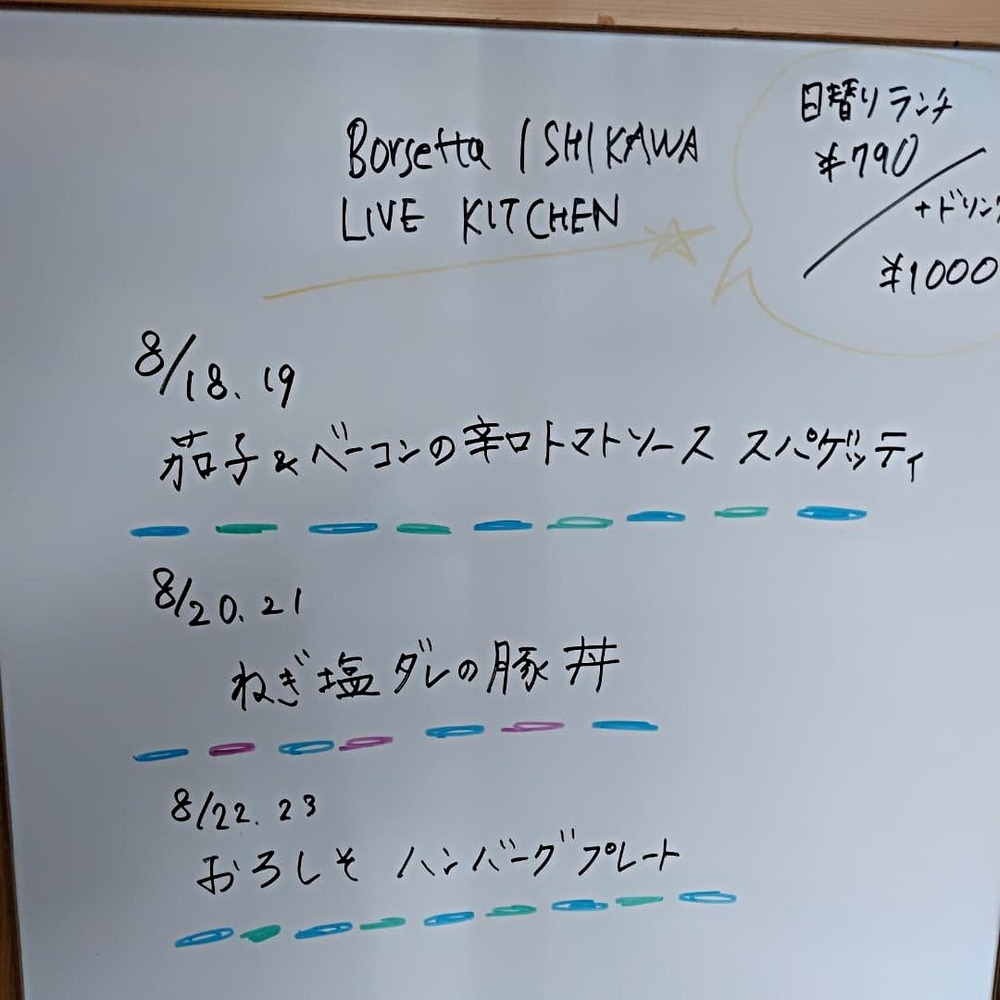 Borsetta ISHIKAWA
LIVE KITCHEN
日替りランチ
¥790
+ドリン
¥1000
8/18.19
茄子&ベーコンの辛口トマトソース スパゲッティ
8/20.21
ねぎ塩ダレの豚丼
8/22.23
おろしそ ハンバーグプレート